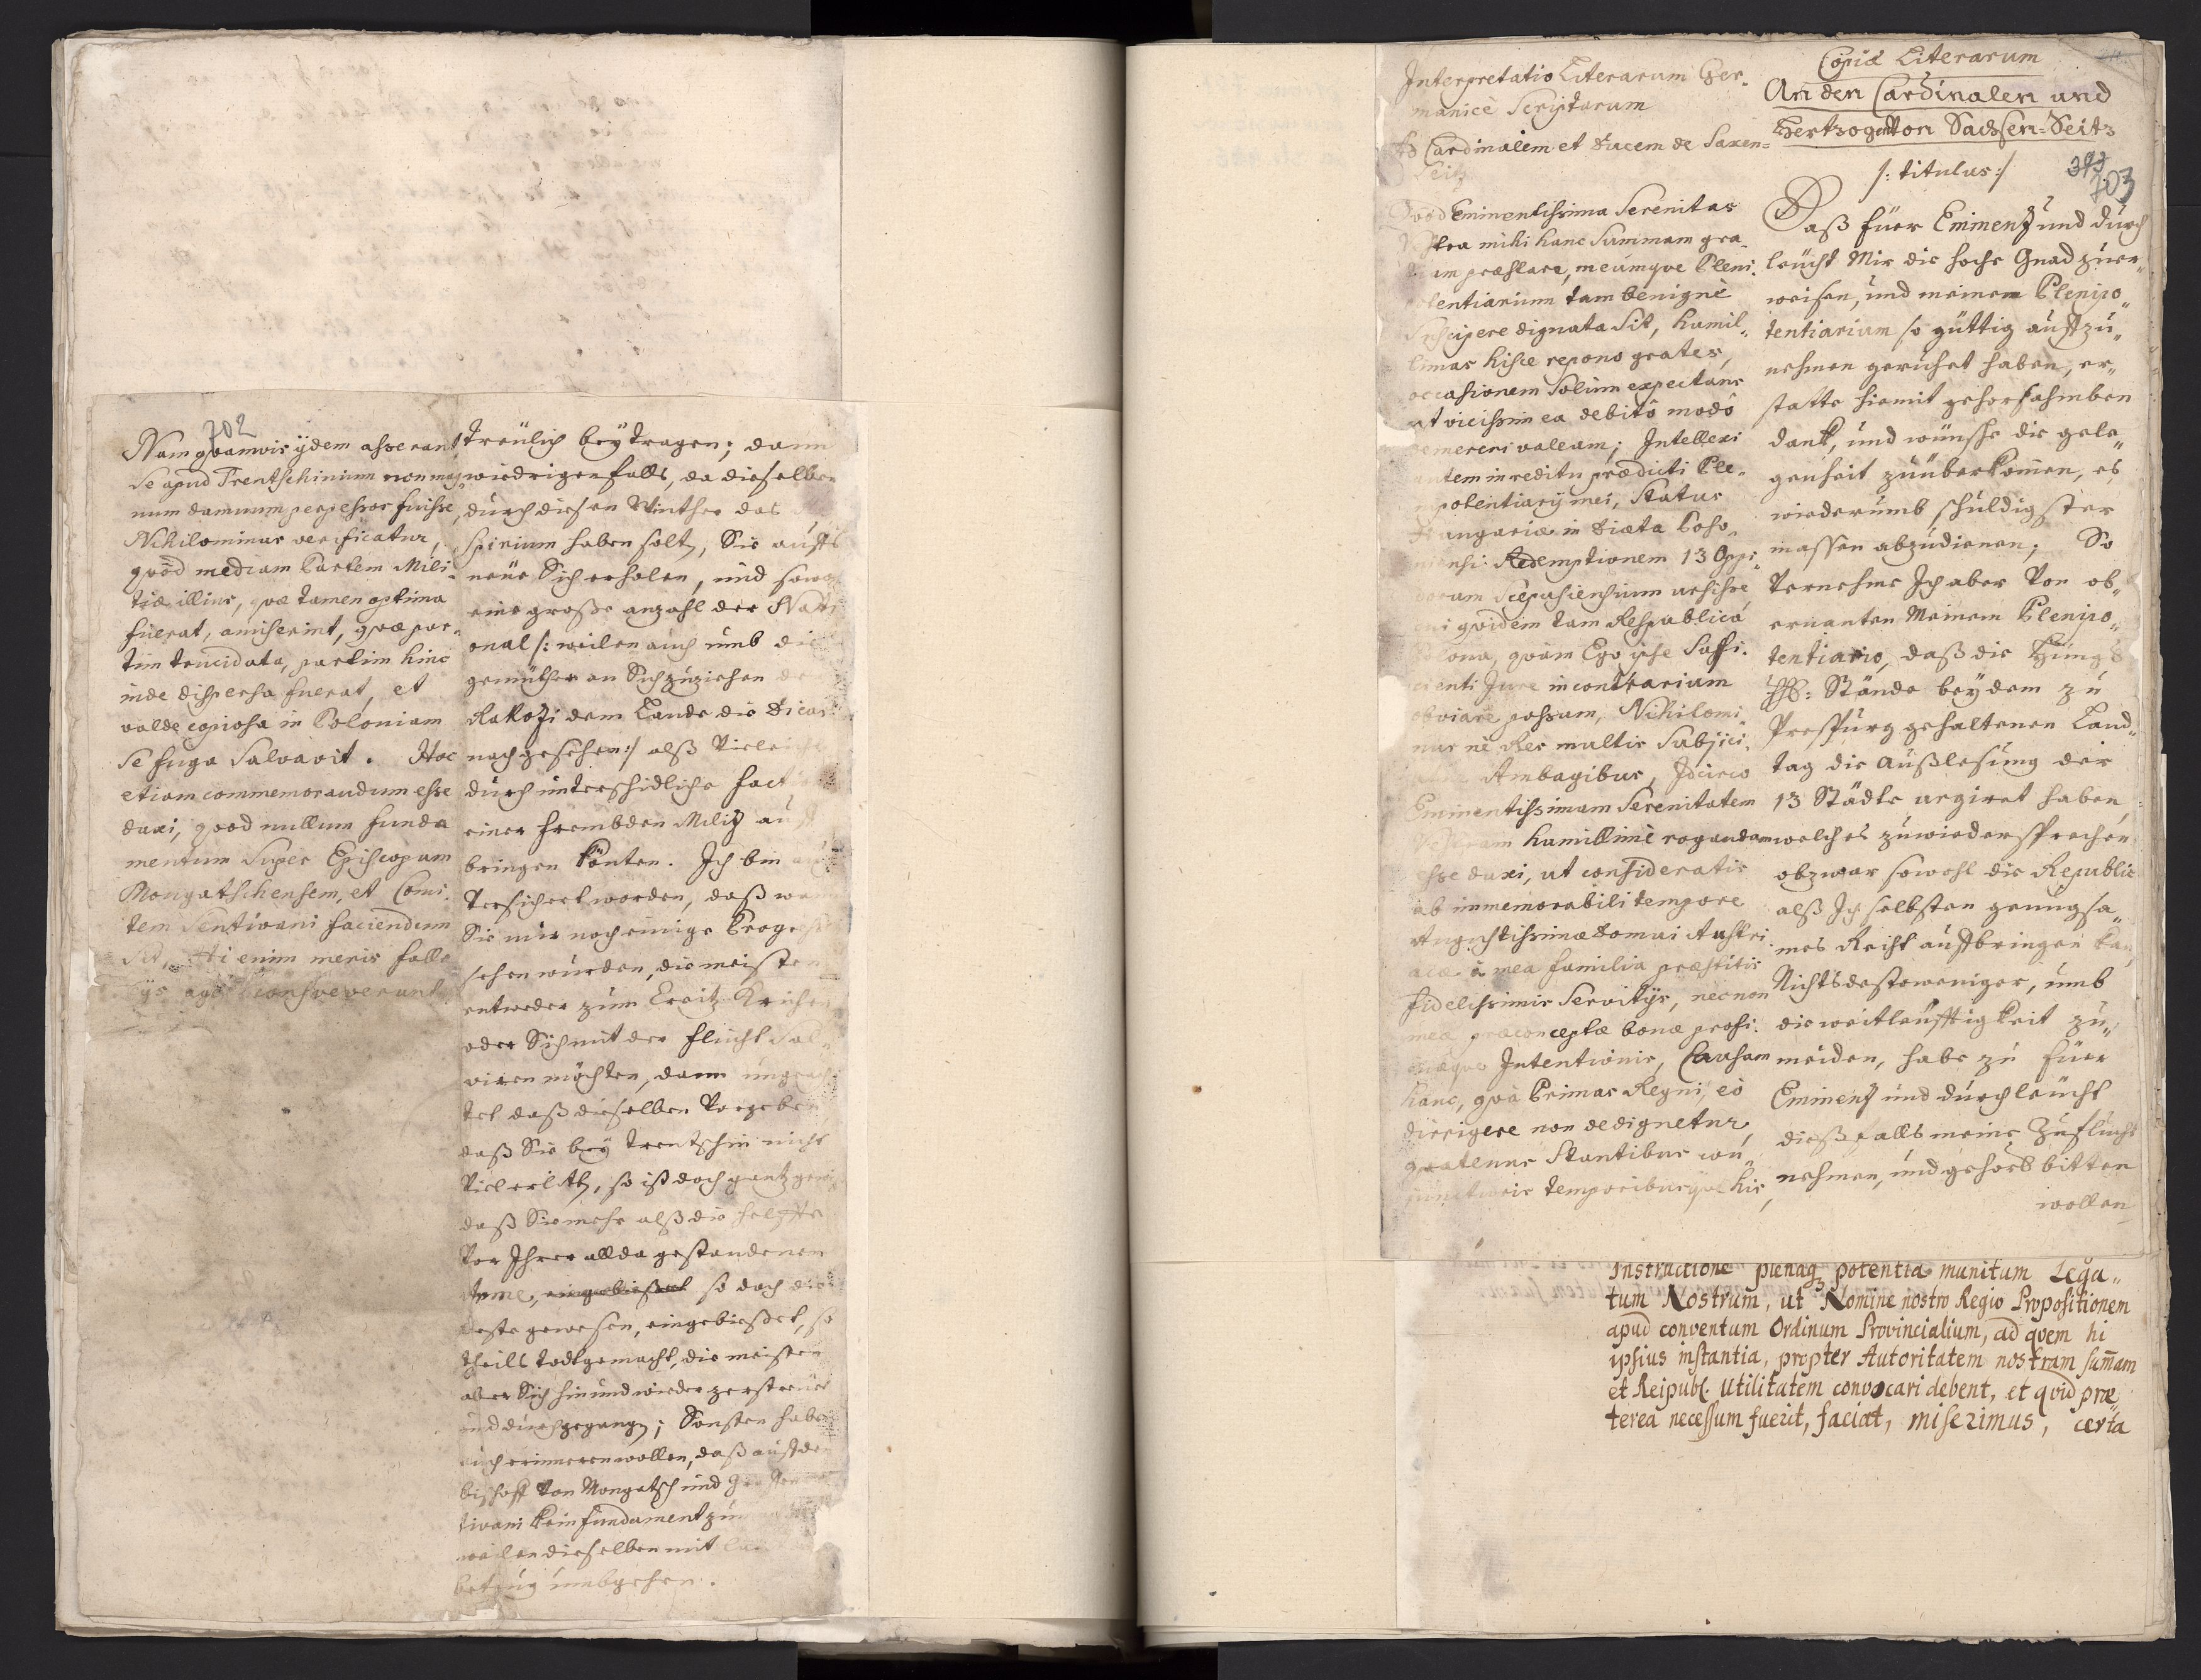 702
Nam qvamvis ijdem asserant
se apud Trentschinium non mag
num damnum perpessos fuisse,
Nihilominus verificatur,
qvod mediam Partem Mili-
tiæ illius, qvæ tamen optima
fuerat, amiserint, qvæ par-
tim trucidata, partim hinc
inde dispersa fuerat, et
valde copiosa in Poloniam
se fuga salvavit. Hoc
etiam commemorandum esse
duxi, qvod nullum funda
mentum super Episcopum
Mongatschensem, et Comi-
tem Sentivani faciendum
sit, Hi enim meris falla
ijs agere consveverunt.
treülich beÿtragen; dann
wiedrigenfalls, da dieselben
durch diesen Winther das
spirium haben solt, Sie auffs
neüe Sich erholen, und sowohl
eine große anzahl der Nati
onal /: weilen auch umb die
gemüther an Sich zuziehen der
Rakozi dem Lande die Dicas
nachgesehen :/ alß Vieleicht
durch unterschidliche fact
einer frembden Militz auff
bringen könten. Ich bin auch
Versichert worden, daß wann
Sie nur noch einige Progress
sehen würden, die meisten
entweder zum Creütz Kriechen
oder Sich mit der flucht sal
viren möchten, dann ungeach
tet daß dieselben Vorgeben
daß Sie beÿ Trentschin nicht
Viel erlitten, so ist doch gantz gewiß
daß Sie mehr alß die helffte
Von Ihrer allda gestandenen
Armee, eingebüßet so doch die
beste gewesen, eingebüßet, so
theils todtgemacht, die meisten
aber Sich hin und wieder zerstreüet
und durchgegangen; Sonsten habe
auch erinneren wollen, daß auf den
bischoff Von Mongatsch und Graffen
tivani kein fundament zu
weilen dieselben mit lauter
betrug umbgehen.
Interpretatio Literarum Ger-
manicè Scriptarum
Ad Cardinalem et Ducem de Saxen-
Seitz
Qvod Eminentissima Serenitas
Vestra mihi hanc summam gra-
tiam præstare, meumqve Pleni-
potentiarium tam benignè
suscipere dignata sit, humil-
limas hisce repono grates,
occasionem solùm expectans
ut vicissim ea debitô modô
demereri valeam; Intellexi
autem in reditu prædicti Ple-
nipotentiarij mei, Status
Hungariæ in Diæta Poso-
niensi Redemptionem 13 Oppi-
dorum Scepusiensium ursisse
cui qvidem tam Respublica
Polona, qvàm Ego ipse suffi-
cienti Jure in contrarium
obviare possum, Nihilomi-
nus nè Res multis subjici-
atur Ambagibus, Idcirco
Eminentissimam Serenitatem
Vestram humillimè rogandam
esse duxi, ut consideratis
ab immemorabili tempore
Augustissimæ Domui Austri-
acæ à mea familia præstitis
fidelissimis Servitijs, necnon
meæ præconceptæ bonæ prosi-
cuæqve Intentionis, Causam
hanc, qvà Primas Regni, eò
dirrigere non dedignetur,
qvatenus stantibus con-
juncturis temporibusqve his,
Copiæ Literarum
An den Cardinalen und
Hertzogen Von Sachsen-Seitz
/: titulus :/
703
Daß Eüer Eminentz und Durch
leücht Mir die hohe Gnad zuer-
weisen, und meinem Plenipo-
tentiarium so güttig auffzu-
nehmen geruhet haben, er-
statte hiemit gehorsahmben
dank, und wünsche die gele-
genheit zuüberkom̅en, es
wiederumb schuldigster
massen abzudienen; So
Vernehme Ich aber Von ob-
ernanten Meinem Plenipo-
tentiario, daß die Hung:
Hh: Stände beÿ dem zu
Prespurg gehaltenen Land-
tag die Außlesung der
13 Städte urgiret haben
welches zuwiedersprechen
obzwar sowohl die Republic
alß Ich selbsten genugsa-
mes Recht auffbringen kan,
Nichtsdestoweniger, umb
die weitleüfftigkeit zu-
meiden, habe zu Eüer
Eminentz und durchleücht
dießfalls meine Zuflucht
nehmen, und gehors bitten
wollen
Instructione plenaq potentia munitum Lega-
tum Nostrum, ut Nomine nostro Regio Propositionem
apud conventum Ordinum Provincialium, ad qvem hi
ipsius instantia, propter Autoritatem nostram sum̅am
et Reipubl. Utilitatem convocari debent, et qvid præ
terea necessum fuerit, faciat, miserimus, certa